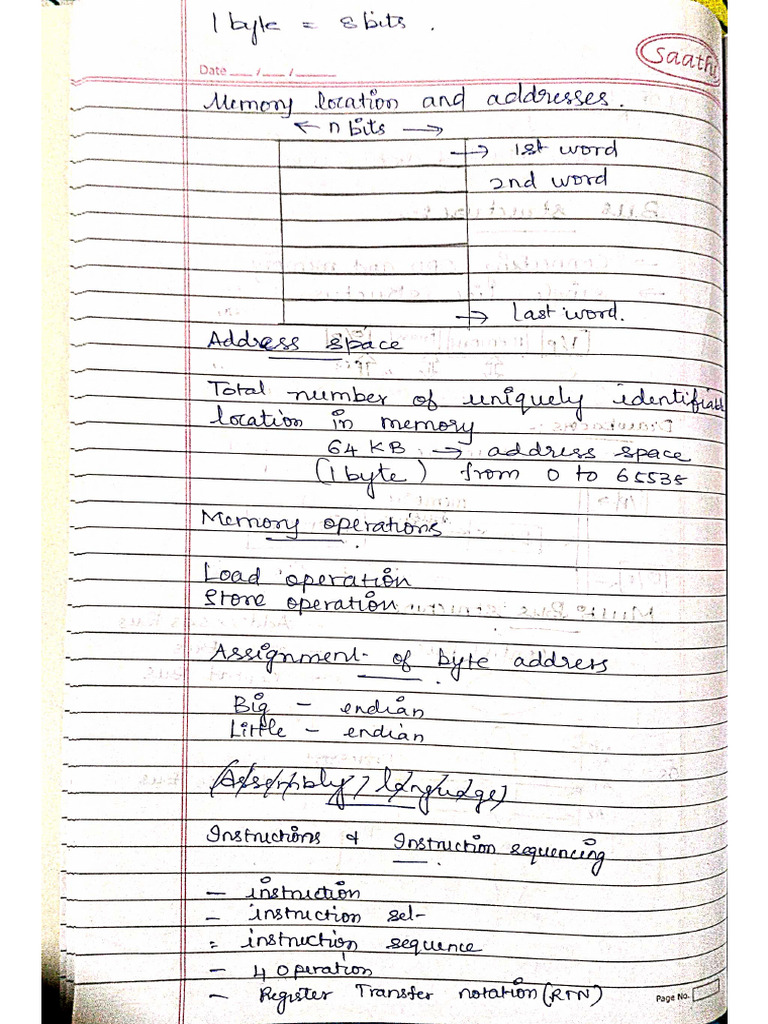 1 byte = 8 bits.
Saathi
Date ___/___/______
Memory location and addresses.
← n bits →
→ 1st word
2nd word
→ Last word.
Address space
Total number of uniquely identifiabl
location in memory
64 KB → address space
(1 byte) from 0 to 65535
Memory operations
Load operation
Store operation
Assignment of byte address
Big - endian
Little - endian
(Assembly language)
Instructions & Instruction sequencing
- instruction
- instruction set
= instruction sequence
- 4 operation
- Register Transfer notation (RTN)
Page No.